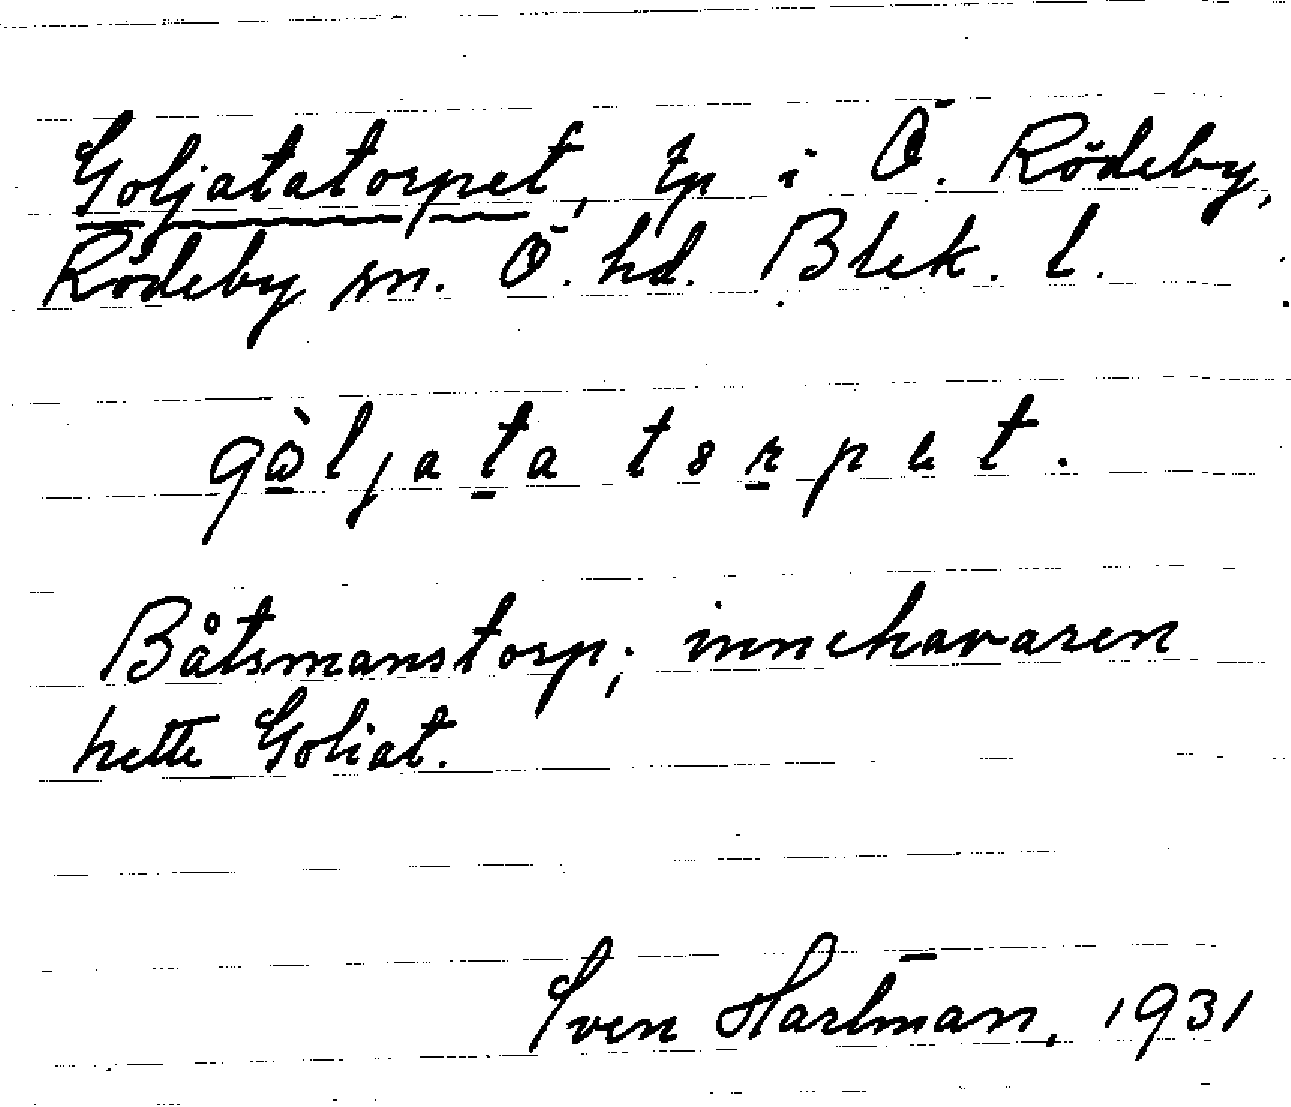 Goljatatorpet, tp i Ö. Rödeby,
Rödeby sn. Ö. hd. Blek. l.
gὼljata torpet.
Båtsmanstorp; innehavaren
hette Goliat.
Sven Harlman, 1931